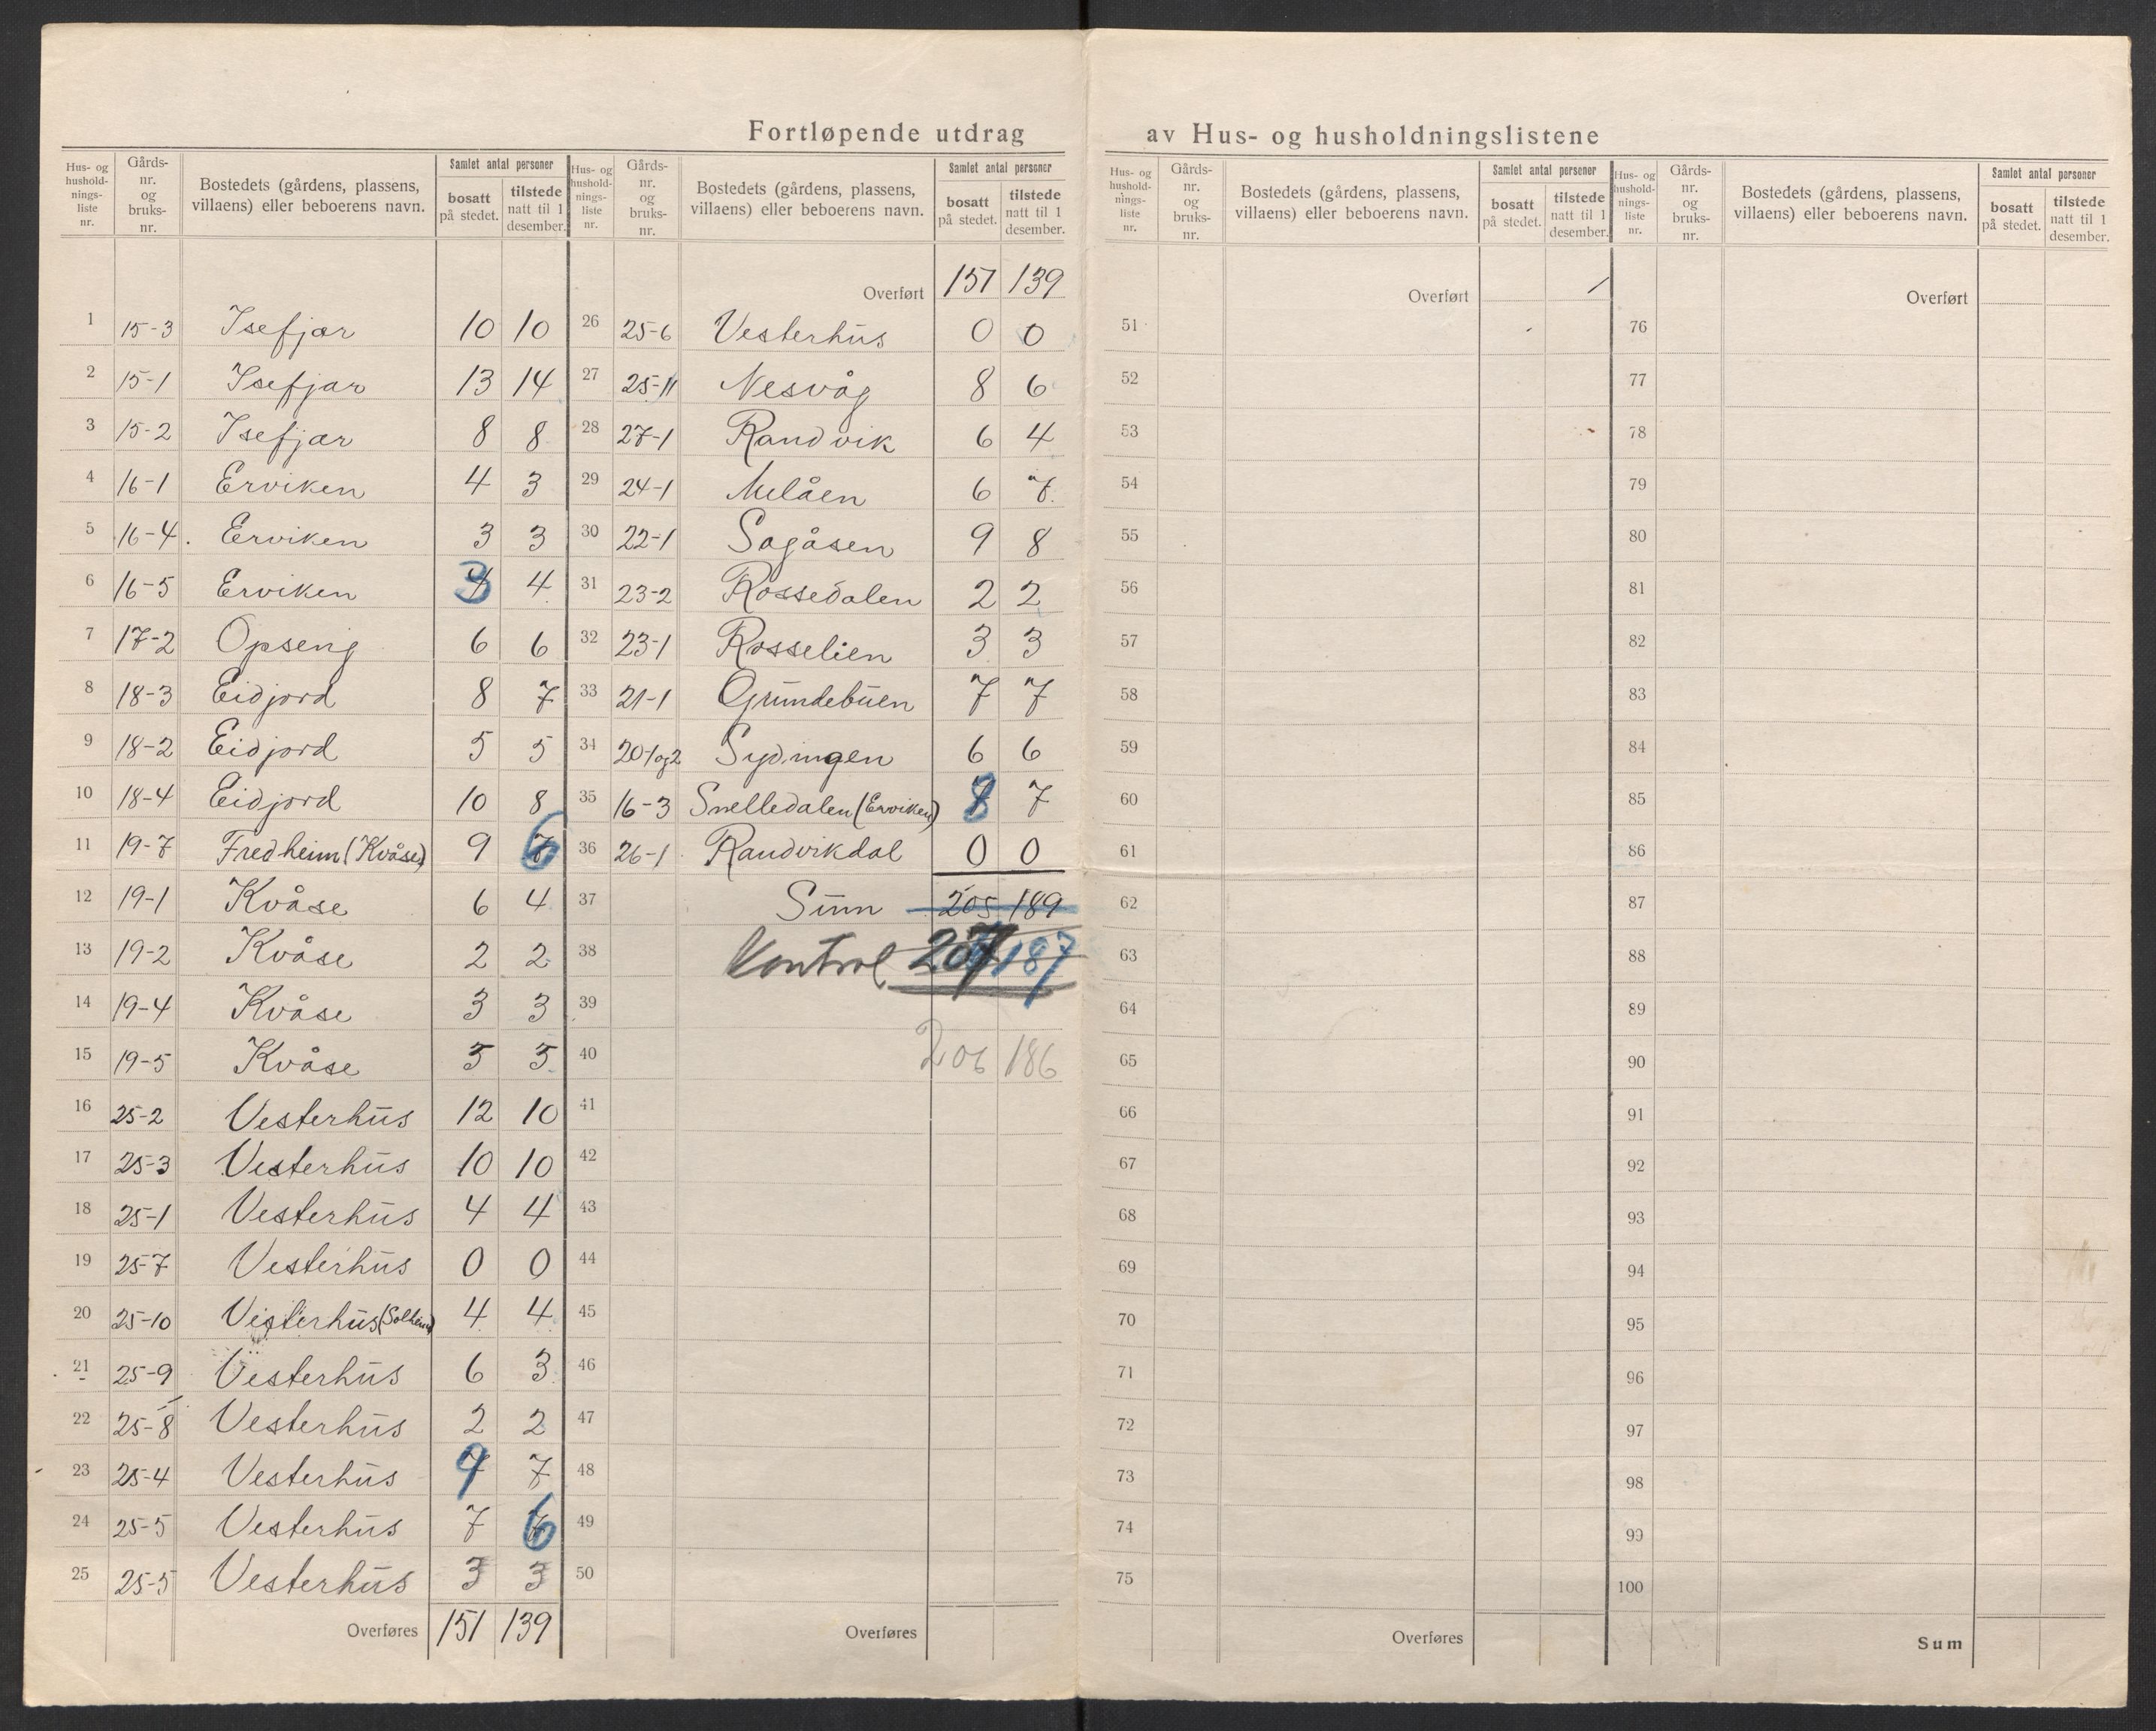 Fortløpende utdrag av Hus- og husholdningslistene
Hus- og husholdningsliste nr. Gårdsnr. og bruksnr. Bostedets (gårdens, plassens, villaens) eller beboerens navn. Samlet antal personer bosatt på stedet. tilstede natt til 1 desember.
1 15-3 Isefjær 10 10
2 15-1 Isefjær 13 14
3 15-2 Isefjær 8 8
4 16-1 Erviken 4 3
5 16-4. Erviken 3 3
6 16-5 Erviken 3 4
7 17-2 Opseng 6 6
8 18-3 Eidjord 8 7
9 18-2 Eidjord 5 5
10 18-4 Eidjord 10 8
11 19-7 Fredheim (Kvåse) 9 6
12 19-1 Kvåse 6 4
13 19-2 Kvåse 2 2
14 19-4 Kvåse 3 3
15 19-5 Kvåse 5 5
16 25-2 Vesterhus 12 10
17 25-3 Vesterhus 10 10
18 25-1 Vesterhus 4 4
19 25-7 Vesterhus 0 0
20 25-10 Vesterhus (Solheim) 4 4
21 25-9 Vesterhus 6 3
22 25-8 Vesterhus 2 2
23 25-4 Vesterhus 9 7
24 25-5 Vesterhus 7 6
25 25-5 Vesterhus 3 3
Overføres 151 139
Hus- og husholdningsliste nr. Gårdsnr. og bruksnr. Bostedets (gårdens, plassens, villaens) eller beboerens navn. Samlet antal personer bosatt på stedet. tilstede natt til 1 desember.
Overført 151 139
26 25-6 Vesterhus 0 0
27 25-11 Nesvåg 8 6
28 27-1 Randvik 6 4
29 24-1 Melåen 6 7
30 22-1 Sagåsen 9 8
31 23-2 Rossedalen 2 2
32 23-1 Rosselien 3 3
33 21-1 Grundebuen 7 7
34 20-1og2 Sydingen 6 6
35 16-3 Snelledalen (Erviken) 8 7
36 26-1 Randvikdal 0 0
37 Sum 205 189
38 Kontrol 207 187
39
40 206 186
41
42
43
44
45
46
47
48
49
50
Overføres
Hus- og husholdningsliste nr. Gårdsnr. og bruksnr. Bostedets (gårdens, plassens, villaens) eller beboerens navn. Samlet antal personer bosatt på stedet. tilstede natt til 1 desember.
Overført
51
52
53
54
55
56
57
58
59
60
61
62
63
64
65
66
67
68
69
70
71
72
73
74
75
Overføres
Hus- og husholdningsliste nr. Gårdsnr. og bruksnr. Bostedets (gårdens, plassens, villaens) eller beboerens navn. Samlet antal personer bosatt på stedet. tilstede natt til 1 desember.
Overført
76
77
78
79
80
81
82
83
84
85
86
87
88
89
90
91
92
93
94
95
96
97
98
99
100
Sum